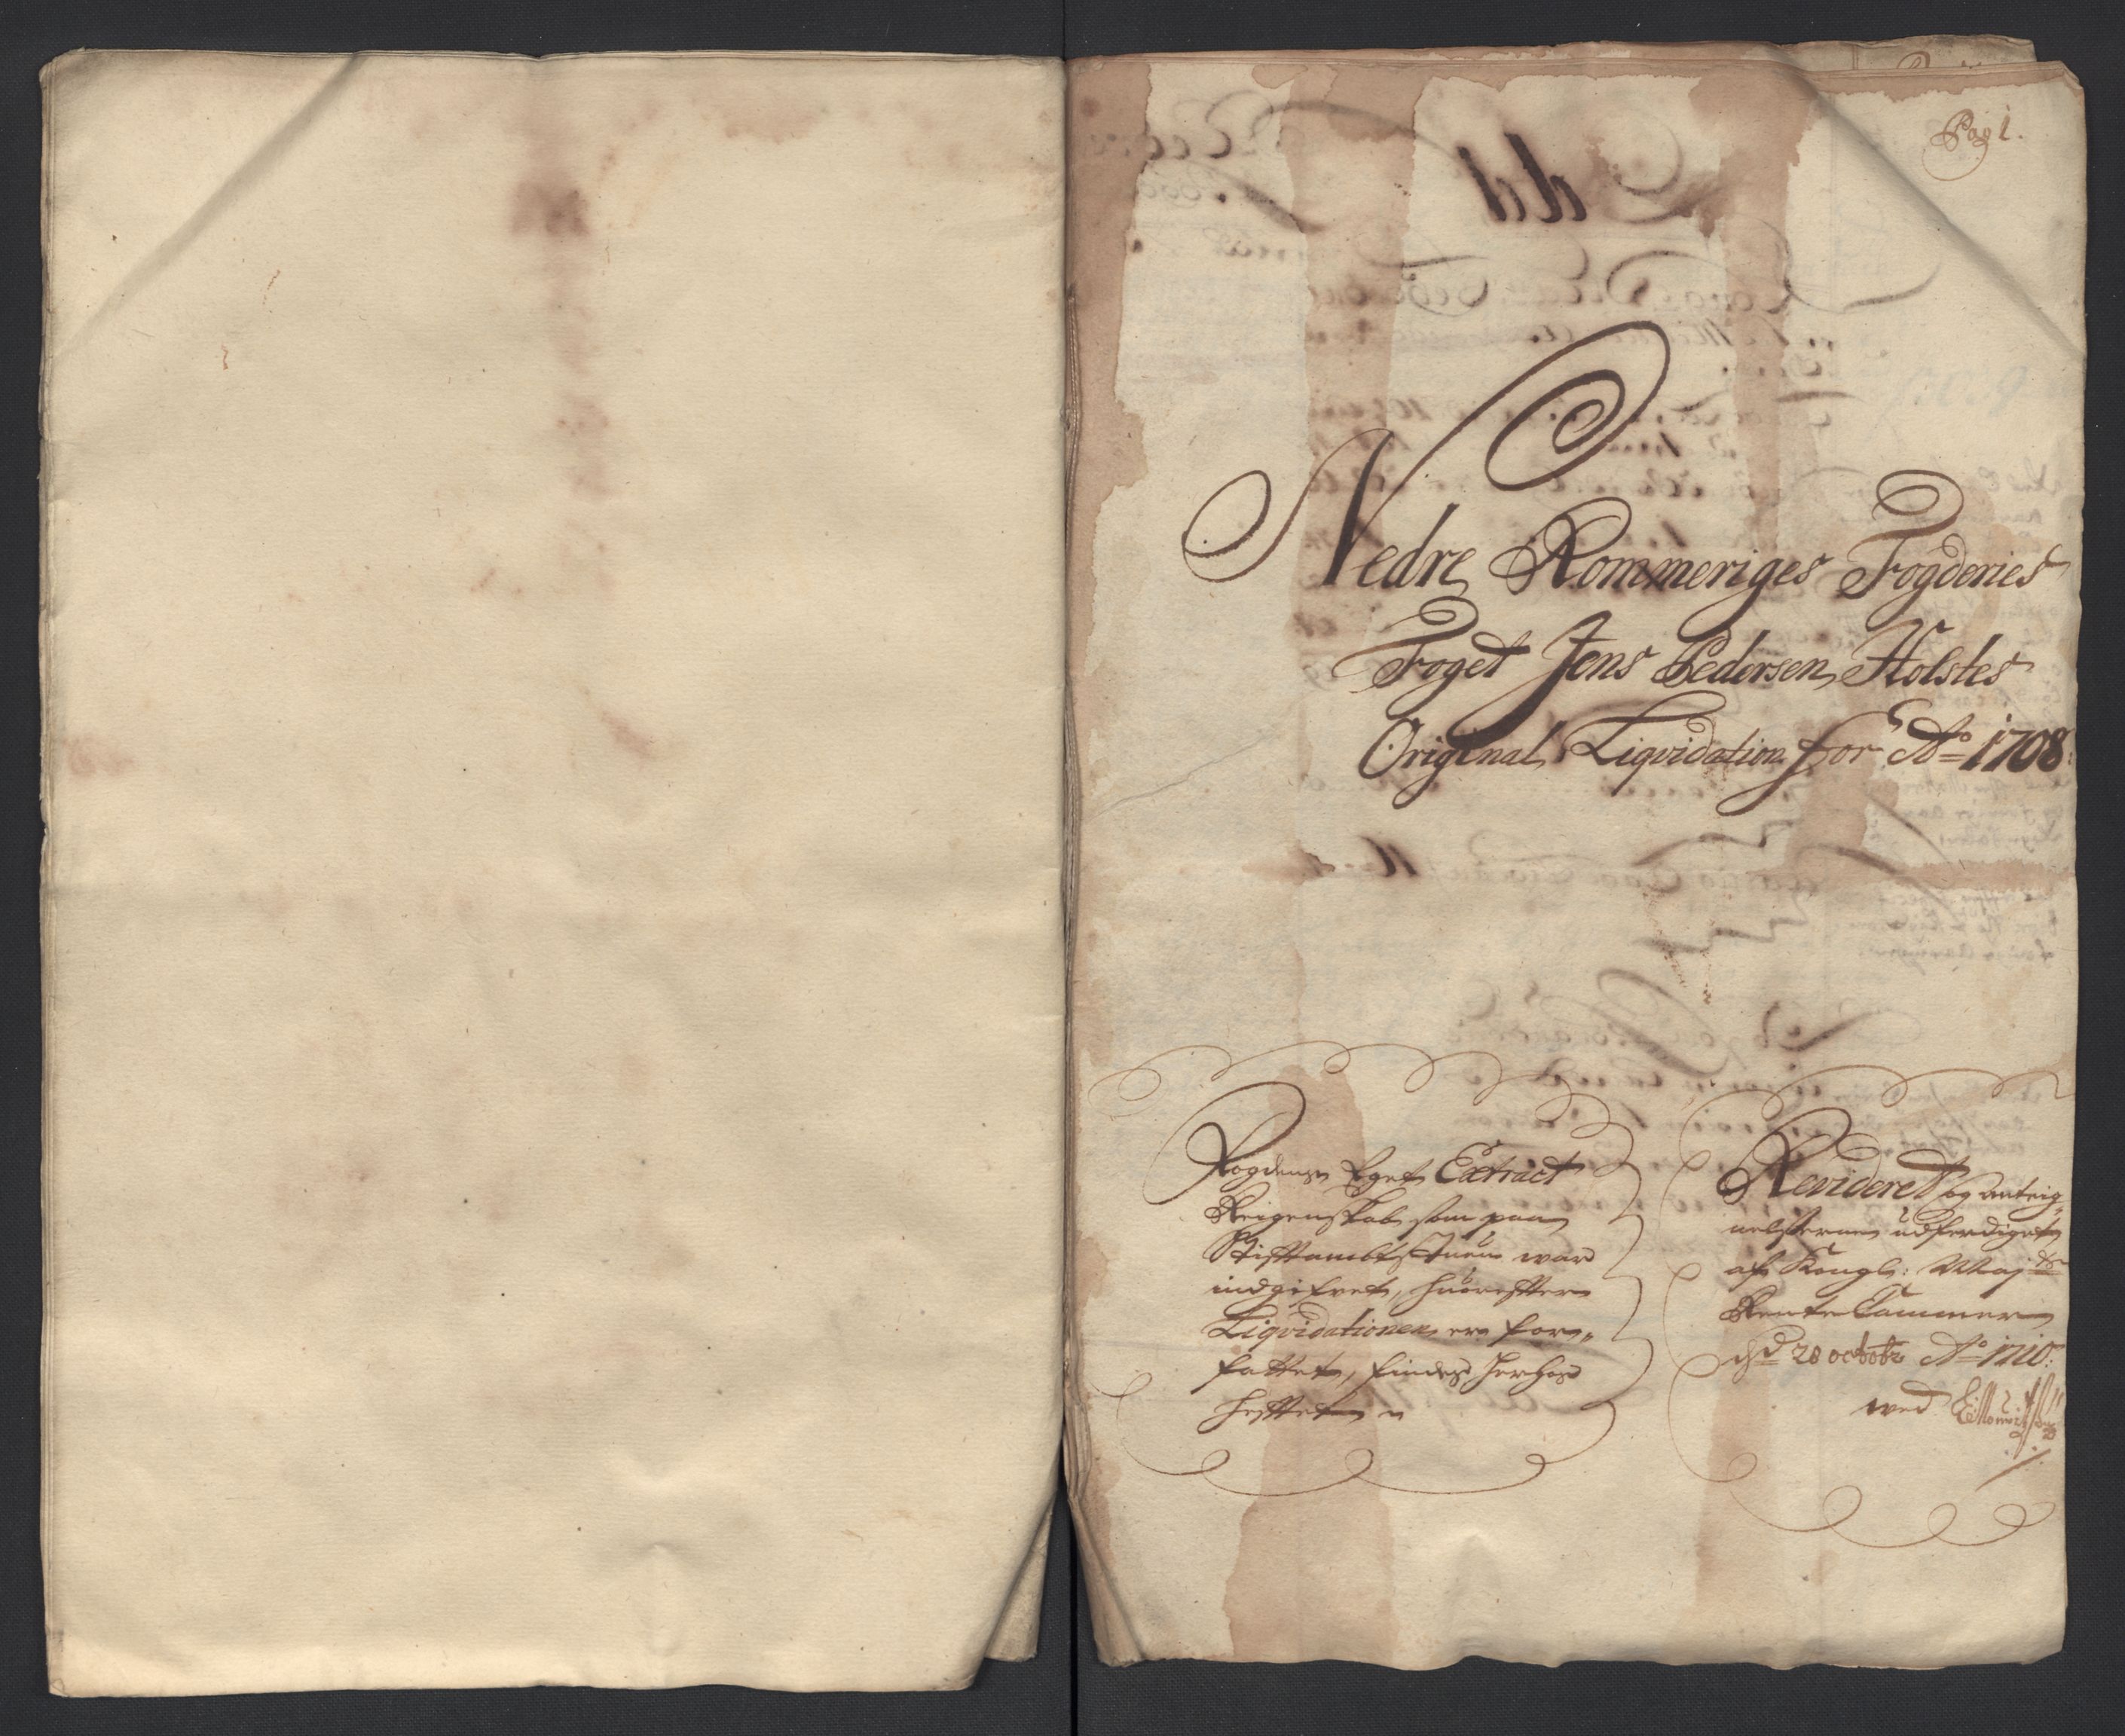 Pag 1.
Nedre Rommeriges Fogderies
Foget Jens Pedersen Holstes
Original Liqvidation for Ao 1708
Fogdens Eget Extract
Reigenskab som paa
Stifftambtstuen war
indgifvet, huorefter
Liqvidationen er for„
fattet, findes herhos
hefftet
Revideret og anteig„
nelserne udferdiget
af Kongl: Maj ts
Rente Cammer
d 28 octobr Ao 1710:
wed